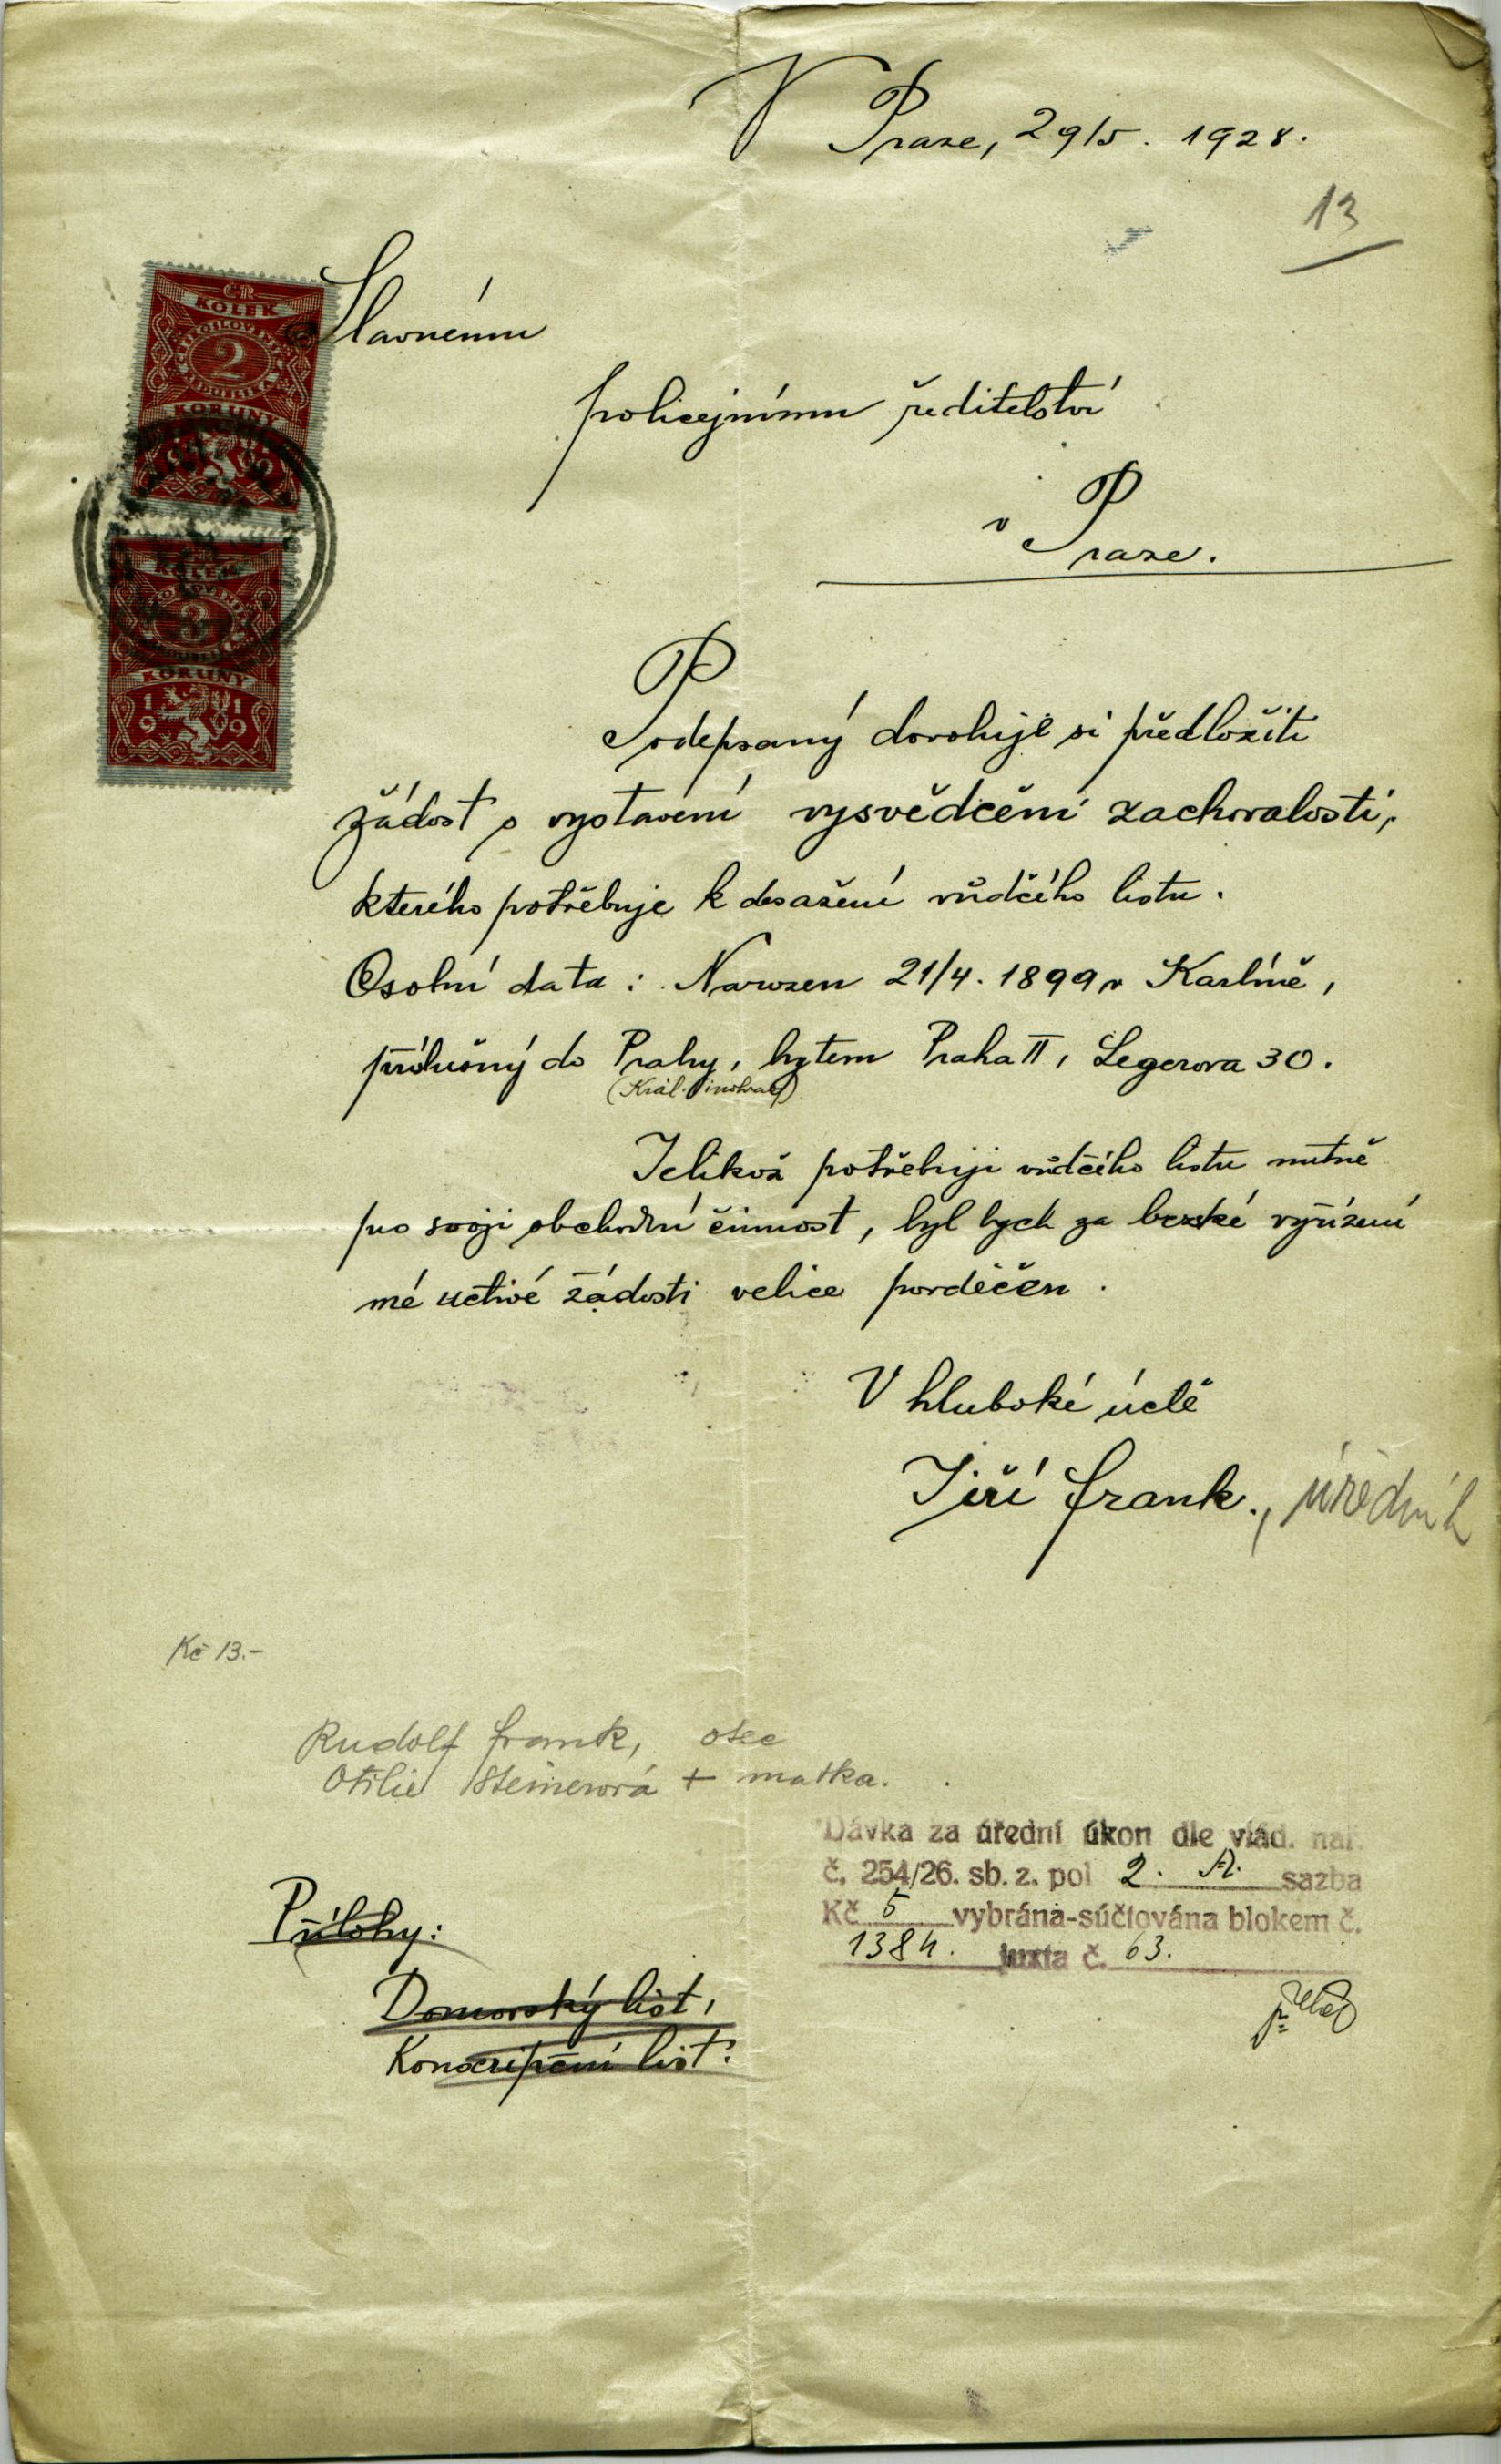 V Praze, 29/5. 1928.
13
ČR
KOLEK
2
KORUNY
Slavnému
policejnímu ředitelství
v Praze.
KOLEK
3
KORUNY
19 19
Podepsaný dovoluje si předložiti
žádost o vystavení vysvědčení zachovalosti,
kterého potřebuje k dosažení vůdčího listu.
Osobní data: Narozen 21/4. 1899 v Karlíně,
příslušný do Prahy, bytem Praha II, Legerova 30.
(Král. Vinohrady)
Jelikož potřebuji vůdčího listu nutně
pro svoji obchodní činnost, byl bych za brzké vyřízení
mé uctivé žádosti velice povděčen.
V hluboké úctě
Jiří Frank., úředník
Kč 13.-
Rudolf Frank, otec
Otilie Steinerová + matka.
Dávka za úřední úkon dle vlád. nař.
č. 254/26. sb. z. pol 2. A. sazba
Kč 5 vybrána-súčtována blokem č.
1384. juxta č. 63.
Přílohy:
Domovský list,
Konscripční list.